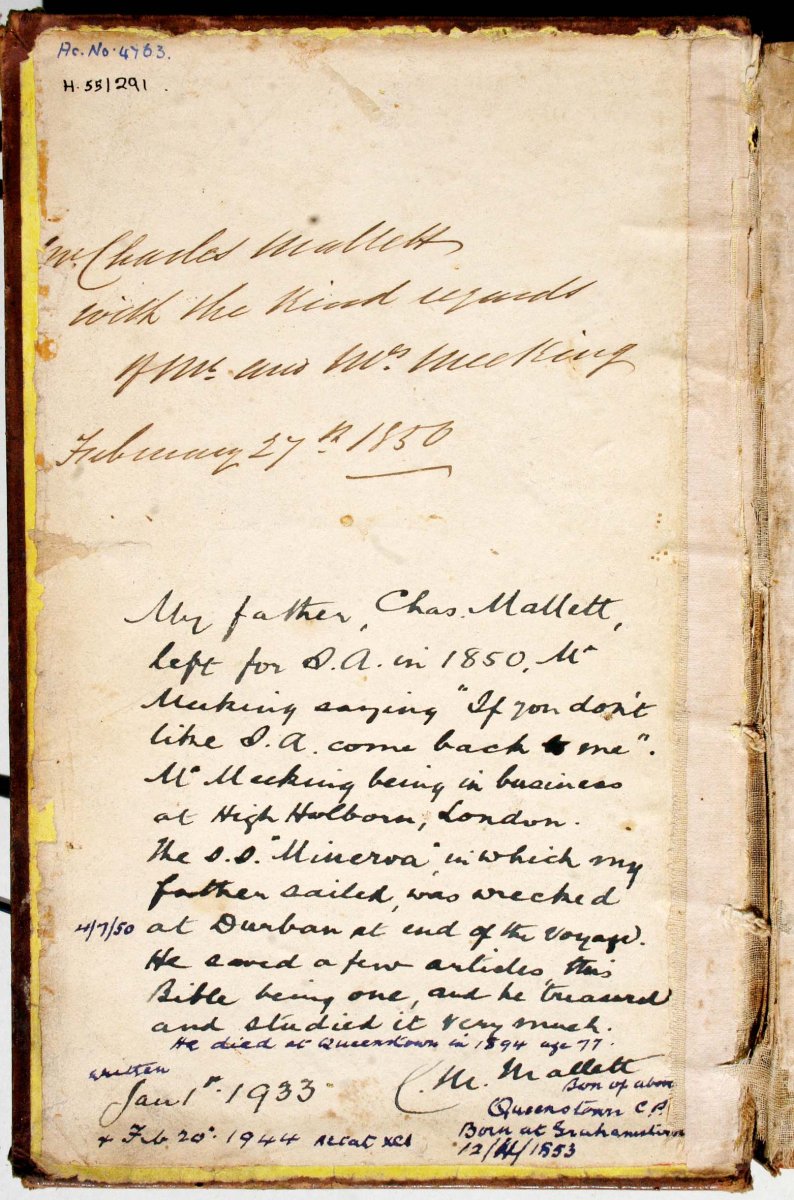 Ac. No. 4763.
H. 55/291.
Mr. Charles Mallett
with the kind regards
of Mr. and Mrs Meeking
February 27th 1850
My father, Chas. Mallett,
left for S.A. in 1850, Mr
Meeking saying "If you don't
like S.A. come back to me".
Mr Meeking being in business
at High Holborn, London.
The S.S. "Minerva", in which my
father sailed, was wrecked
4/7/50 at Durban at end of the voyage.
He saved a few articles, this
Bible being one, and he treasured
and studied it very much.
He died at Queenstown in 1894 age 77.
written
Jan 1st. 1933
C. M. Mallett
Son of above
Queenstown C.P.
+ Feb 20. 1944 aetat xci
Born at Grahamstown
12/11/1853